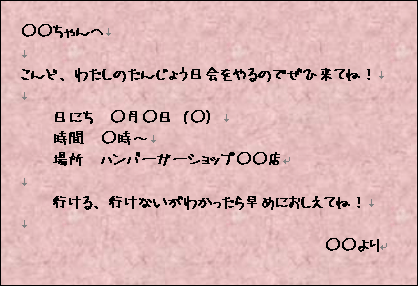 〇〇ちゃんへ
こんど、わたしのたんじょう日会をやるのでぜひ来てね！
日にち　〇月〇日（〇）
時間　〇時～
場所　ハンバーガーショップ〇〇店
行ける、行けないがわかったら早めにおしえてね！
〇〇より